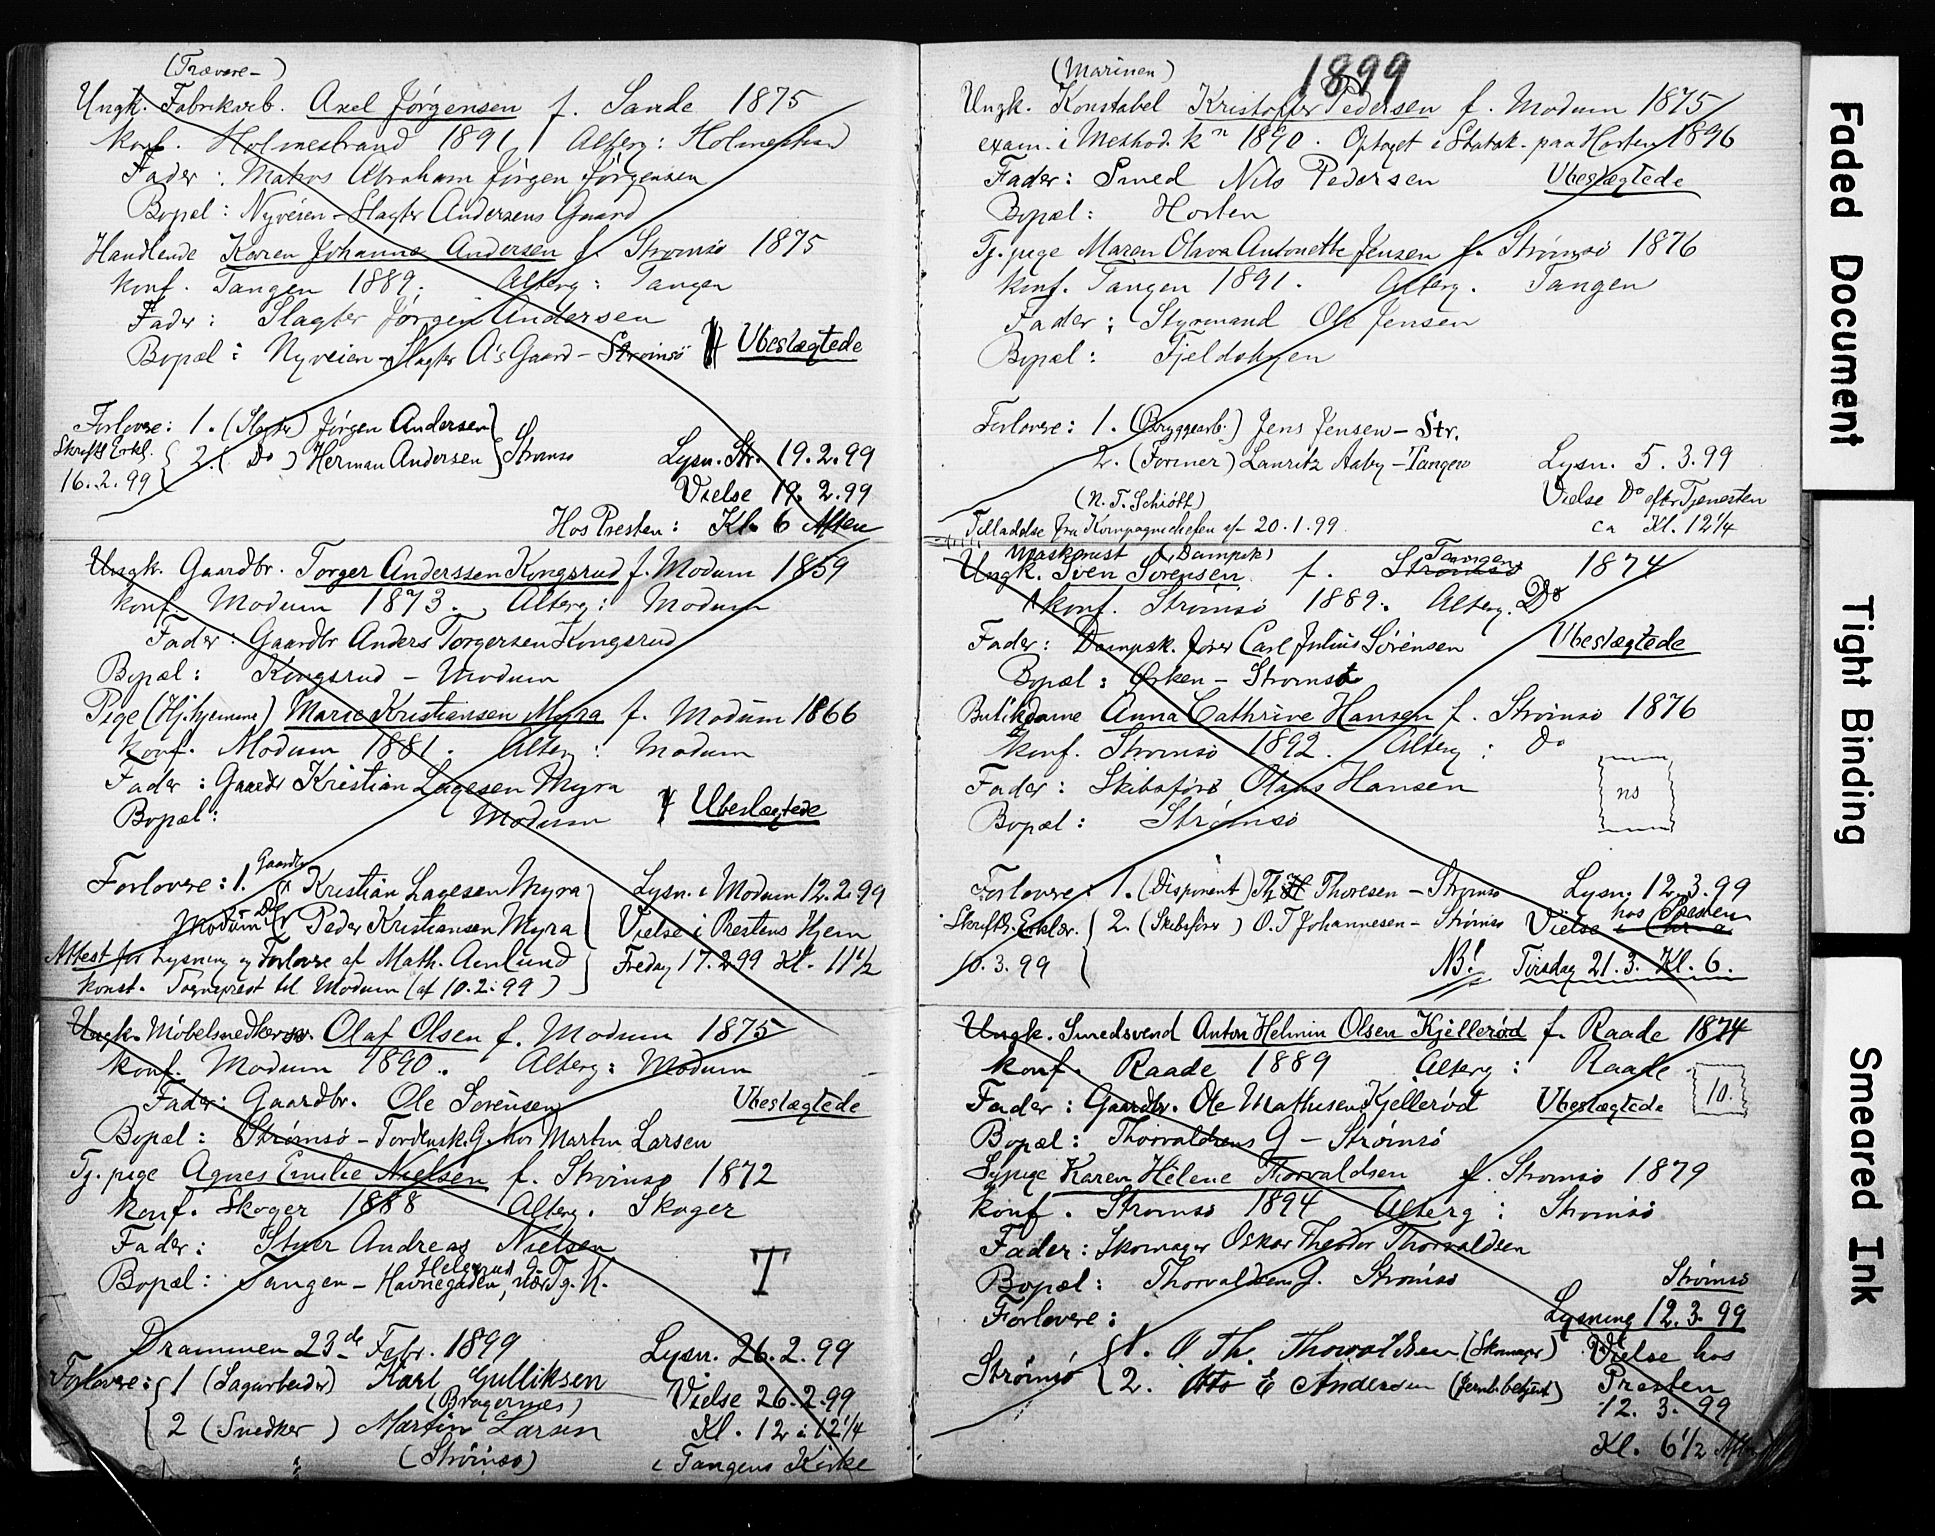 (Trævare-)
Ungk. Fabrikarb. Axel Jörgensen f. Sande 1875
konf. Holmestrand 1891 Alterg: Holmestrand
Fader: Matros Abraham Jörgen Jörgensen
Bopæl: Nyveien - Slagter Andersens Gaard
Handlende Karen Johanne Andersen f. Strømsö 1875
konf. Tangen 1889. Alterg: Tangen
Fader: Slagter Jörgen Andersen
Bopæl: Nyveien - Slagter A's Gaard - Strømsö Ubeslægtede
Forlovere: 1. (Slagter) Jörgen Andersen
Skriftl. Erkl. 2. (Do) Herman Andersen Strømsö Lysn. Str. 19.2.99
16.2.99 Vielse 19.2.99
Hos Presten: Kl. 6 Aften
Ungk. Gaardbr. Torger Anderssen Kongsrud f. Modum 1859
konf. Modum 1873. Alterg: Modum
Fader: Gaardbr Anders Torgersen Kongsrud
Bopæl: Kongsrud - Modum
Pige (Hj. hjemme) Marie Kristiansen Myra f. Modum 1866
konf. Modum 1881. Alterg: Modum
Fader: Gaardbr Kristian Lagesen Myra
Bopæl: Modum Ubeslægtede
Gaardbr
Forlovere: 1. Kristian Lagesen Myra Lysn. i Modum 12.2.99
Modum Do Peder Kristiansen Myra Vielse i Prestens Hjem
Attest for Lysning og Forlovere af Math. Amlund Fredag 17.2.99 Kl. 11½
konst. Sogneprest til Modum (af 10.2.99)
Ungk. Möbelsnedker Olaf Olsen f. Modum 1875
konf. Modum 1890. Alterg: Modum
Fader: Gaardbr. Ole Sörensen Ubeslægtede
Bopæl: Strømsö - Tordensk. G. hos Martin Larsen
Tj. pige Agnes Emilie Nielsen f. Strømsö 1872
konf. Skoger 1888 Alterg. Skoger
Fader: Styer Andreas Nielsen
Bopæl: Tangen - Havnegaden, nær Tg. K. T
Drammen 23de Febr. 1899 Lysn. 26.2.99
Forlovere: 1 (Sagarbeider) Karl Gulliksen
(Bragernæs) Vielse 26.2.99
2 (Snedker) Martin Larsen Kl. 12 à 12¼
(Strömsö) i Tangens Kirke
1899
(Marinen)
Ungk. Konstabel Kristoffer Pedersen f. Modum 1875
exam. i Method. kn 1890. Optaget i Statsk. paa Horten 1896
Fader: Smed Nils Pedersen Ubeslægtede
Bopæl: Horten
Tj. pige Maren Olava Antonette Jensen f. Strømsö 1876
konf. Tangen 1891. Alterg. Tangen
Fader: Styrmand Ole Jensen
Bopæl: Fjeldskjen
Forlovere: 1. (Bryggearb.) Jens Jensen - Str.
2. (Former) Lauritz Aaby - Tangen Lysn. 5.3.99
(N. T. Schiött) Vielse Do efter Tjenesten
Tilladelse fra Kompagnichefen af 20.1.99. ca Kl. 12¼
Maskinist (Dampsk) Tangen
Ungk. Sven Sörensen f. Strømsö 1874
konf. Strømsö 1889. Alterg. Do
Fader: Dampsk. förer Carl Julius Sörensen Ubeslægtede
Bopæl: Ørken - Strømsö
Butikdame Anna Cathrine Hansen f. Strømsö 1876
konf. Strømsö 1892. Alterg: Do
Fader: Skibsförer Olaus Hansen ns
Bopæl: Strømsö
Forlovere: 1. (Disponent) Th. Thoresen - Strømsö Lysn. 12.3.99
Skriftl. Erklær. 2. (Skibsförer) O. T Johannesen - Strømsö Vielse hos Presten
10.3.99 NB! Tirsdag 21.3. Kl. 6.
Ungk. Smedsvend Anton Helmin Olsen Kjellerød f. Raade 1874
konf. Raade 1889 Alterg: Raade
Fader: Gaardbr. Ole Mathisen Kjellerød Ubeslægtede 10.
Bopæl: Thorvaldsens G - Strømsö
Sypige Karen Helene Thorvaldsen f. Strømsö 1879
konf. Strømsö 1894 Alterg: Strømsö
Fader: Skomager Oskar Theodor Thorvaldsen
Bopæl: Thorvaldsens G. Strømsö Strømsö
Forlovere: Lysning 12.3.99
1. O Th. Thorvaldsen (Skomager) Vielse hos
Strømsö 2. E Andersen (Jernb.betjent) Presten
12.3.99
Kl. 6½
Faded Document
Tight Binding
Smeared Ink